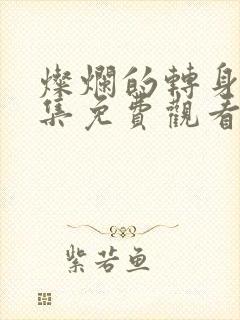 燦爛的轉身
集免費觀看
紫若魚